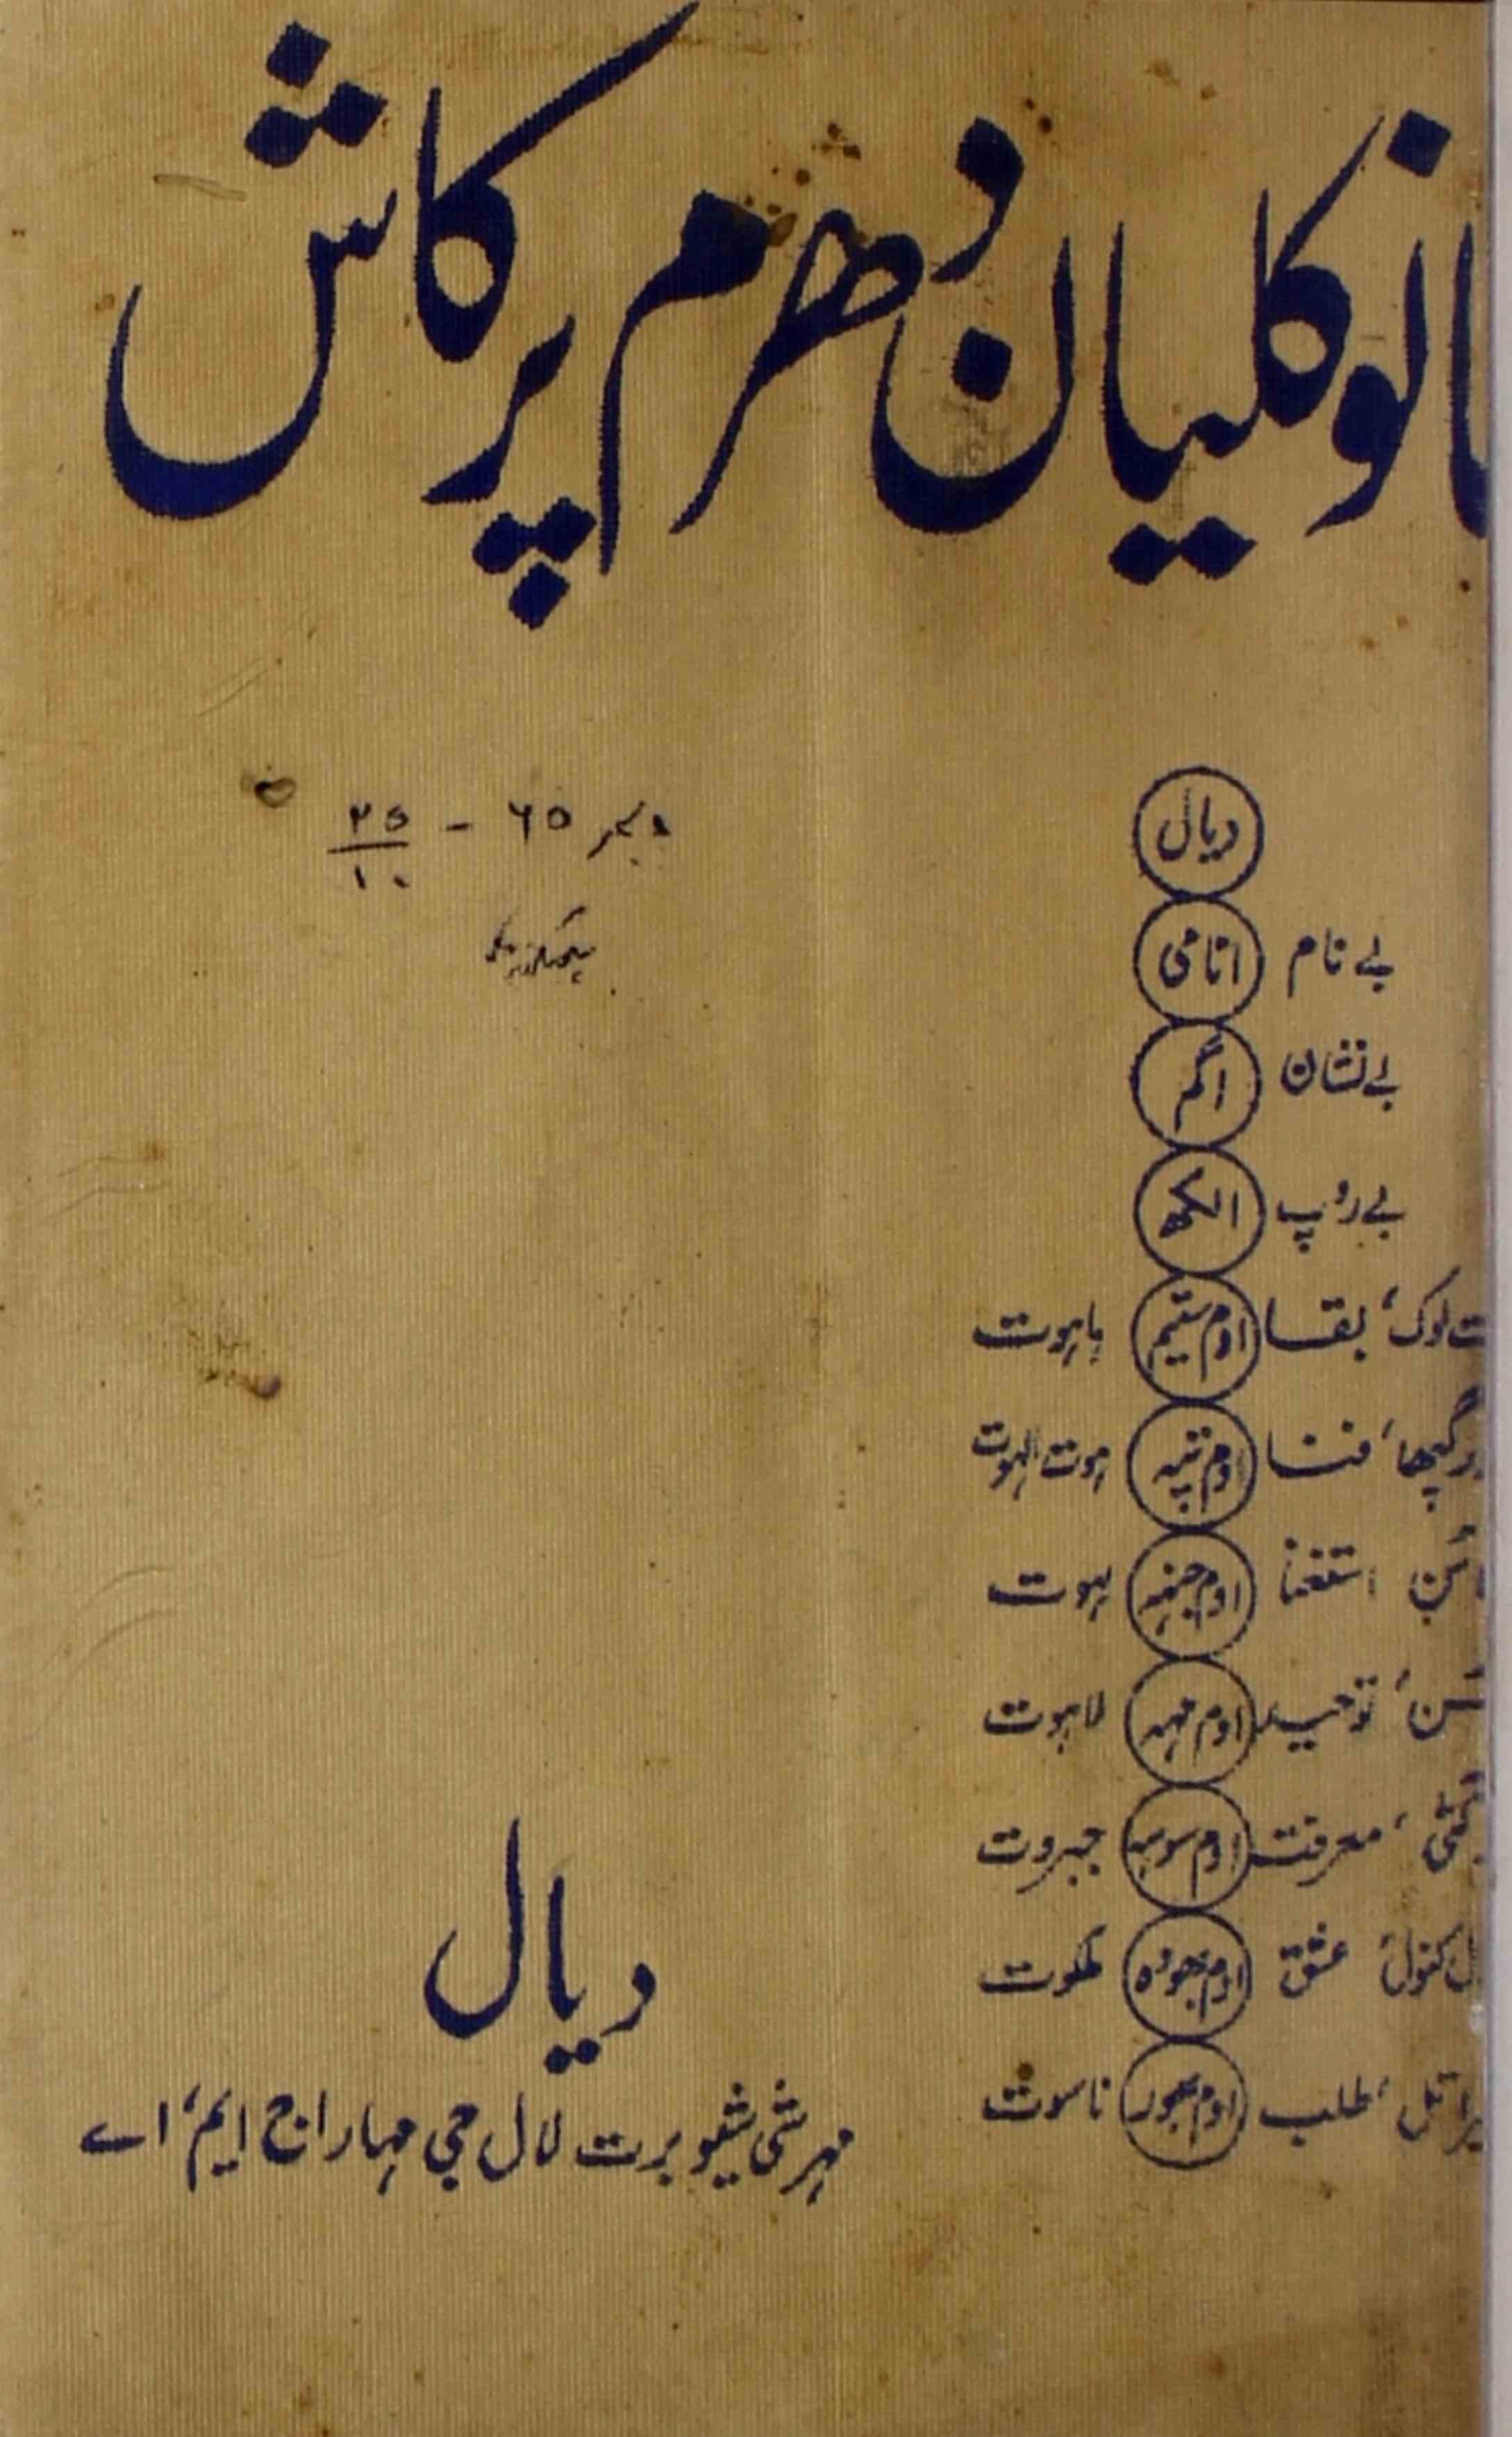 مانو کلیان دھرم پرکاش
دسمبر ٦٥ - ٣٥/١٠
دیال
بے نام انامی
بے نشان اگم
بے روپ الکھ
ت لوک، بقا اوم ستیم باہوت
ر گپھا، فنا اوم تپہ ہوت الہوت
سُن استغنا اوم جنہ ہوت
سُن، توحید اوم مہہ لاہوت
معرفت اوم سوہہ جبروت
ل کنول، عشق اوم بھوہ ملکوت
تل، طلب اوم بھور ناسوت
دیال
مہرشی شیو برت لال جی مہاراج ایم، اے